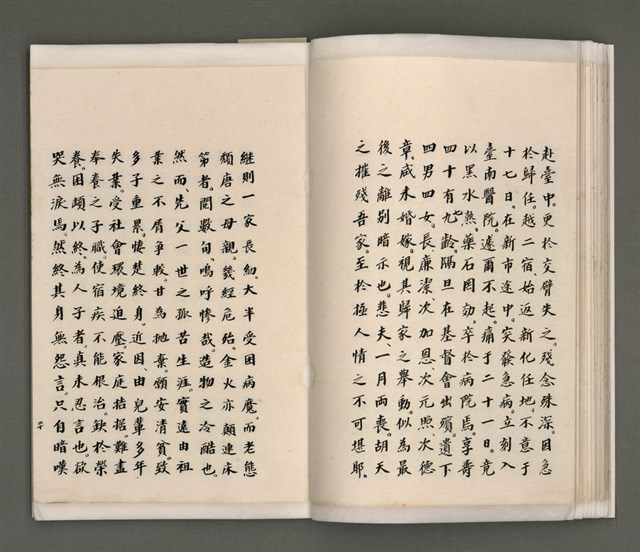 赴臺中。更於交臂失之。殘念殊深。因急
於歸任。越二宿始返新化任地。不意于
十七日。在新市途中。突發急病。立刻入
臺南醫院。遽爾不起。痛于二十一日。竟
以黑水熱。藥石罔効。卒於病院焉。享壽
四十有九齡。隔旦在基督會出殯。遺下
四男四女。長廉潔。次加恩。次元照。次德
章。咸未婚嫁。視其歸家之舉動。似為最
後之離別暗示也。悲夫。一月兩喪。胡天
之摧殘吾家。至於極人情之不可堪耶。
維則一家長幼。大半受困病魔。而老態
頹唐之母親。幾經危殆。金火亦顛連床
笫者。閱數旬。嗚呼慘哉。造物之冷酷也。
然而。先父一世之孤苦生涯。實遠由祖
業之不屑爭較。甘為拋棄。願安清貧。致
多子重累。悽楚終身。近因。由兒輩多年
失業。受社會環境迫壓。家庭拮据。難盡
奉養之子職。使宿疾不能根治。缺於榮
養。困頓以終。為人子者。真未忍言也。欲
哭無淚焉。然終其身無怨言。只自暗嘆